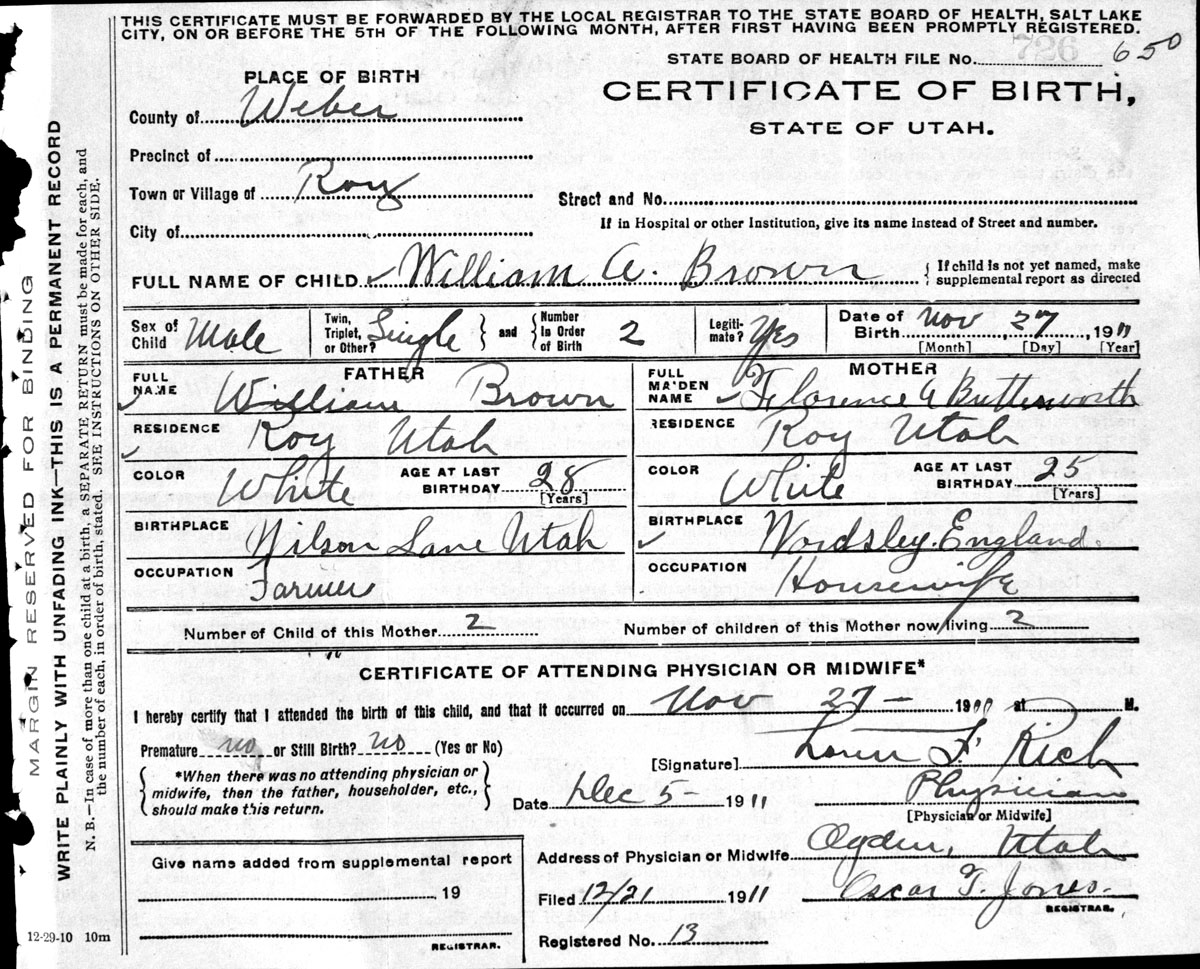 THIS CERTIFICATE MUST BE FORWARDED BY THE LOCAL REGISTRAR TO THE STATE BOARD OF HEALTH, SALT LAKE
CITY, ON OR BEFORE THE 5TH OF THE FOLLOWING MONTH, AFTER FIRST HAVING BEEN PROMPTLY REGISTERED.
726
STATE BOARD OF HEALTH FILE No. 650
PLACE OF BIRTH
CERTIFICATE OF BIRTH,
STATE OF UTAH.
County of Weber
Precinct of
Town or Village of Roy
Street and No.
City of
If in Hospital or other Institution, give its name instead of Street and number.
FULL NAME OF CHILD William A. Brown
{ If child is not yet named, make
supplemental report as directed
Sex of Child Male
Twin, Triplet, or Other? Single } and { Number In Order of Birth 2
Legiti- mate? Yes
Date of Birth Nov 27, 1911
[Month] [Day] [Year]
FATHER
FULL NAME William Brown
RESIDENCE Roy Utah
COLOR White AGE AT LAST BIRTHDAY 28 [Years]
BIRTHPLACE Wilson Lane Utah
OCCUPATION Farmer
MOTHER
FULL MAIDEN NAME Florence A Butterworth
RESIDENCE Roy Utah
COLOR White AGE AT LAST BIRTHDAY 25 [Years]
BIRTHPLACE Wordsley. England.
OCCUPATION Housewife
Number of Child of this Mother 2 Number of children of this Mother now living 2
CERTIFICATE OF ATTENDING PHYSICIAN OR MIDWIFE*
I hereby certify that I attended the birth of this child, and that it occurred on Nov 27 - 1911 at M.
Premature no or Still Birth? no (Yes or No)
{ *When there was no attending physician or
midwife, then the father, householder, etc.,
should make this return. }
[Signature] F. Rich
Date Dec 5 - 1911
Physician
[Physician or Midwife]
Address of Physician or Midwife Ogden, Utah
Filed 12/21 1911 Oscar T. Jones.
REGISTRAR.
Registered No. 13
Give name added from supplemental report
19
REGISTRAR.
12-29-10 10m
MARGIN RESERVED FOR BINDING
WRITE PLAINLY WITH UNFADING INK—THIS IS A PERMANENT RECORD
N. B.—In case of more than one child at a birth, a SEPARATE RETURN must be made for each, and
the number of each, in order of birth, stated. SEE INSTRUCTIONS ON OTHER SIDE.